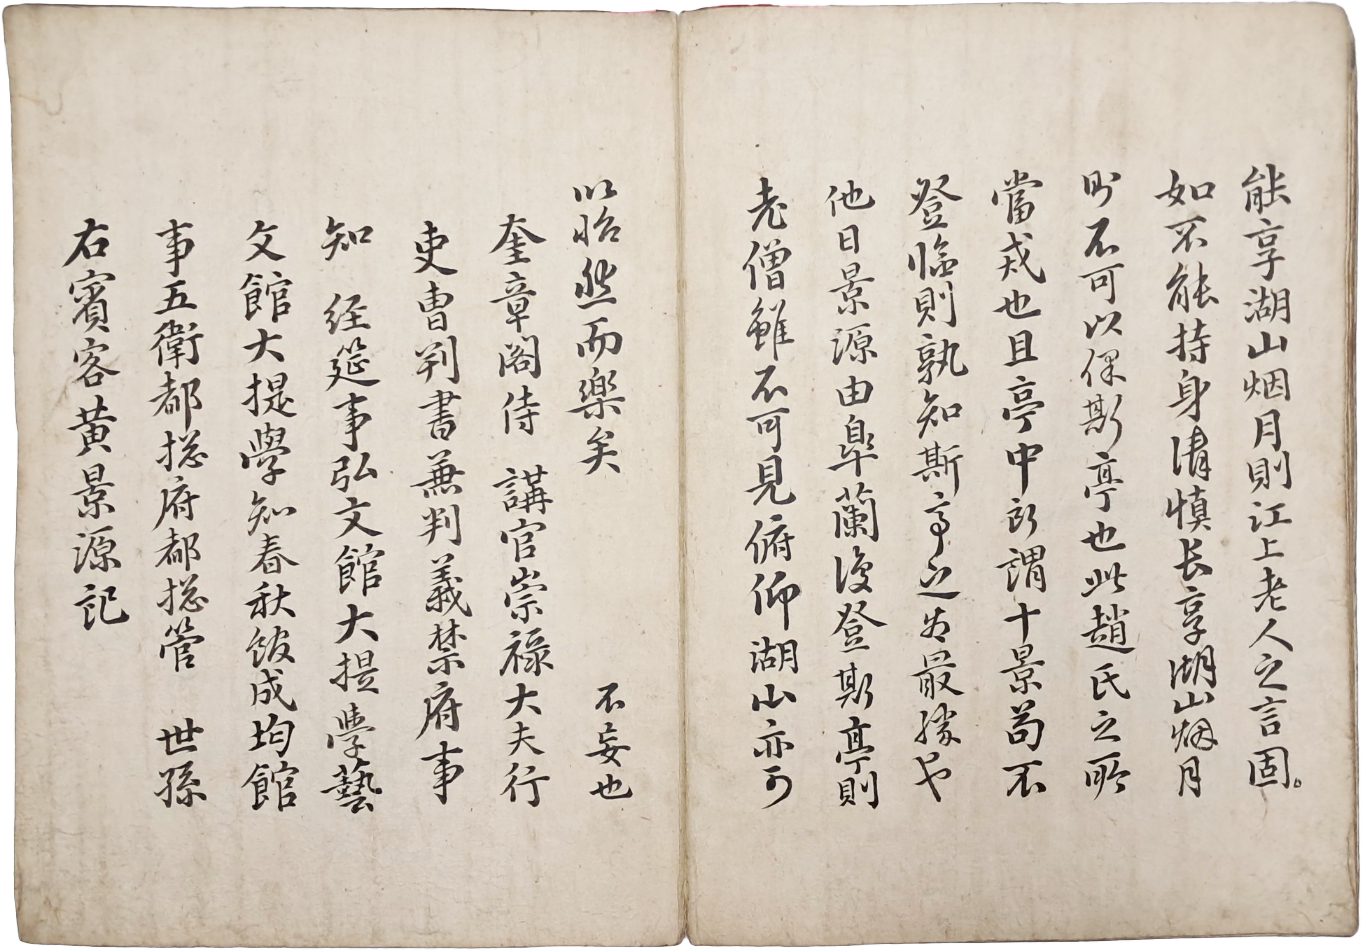 能享湖山烟月則江上老人之言固。
如不能持身清慎长享湖山烟月
則不可以保斯亭也此趙氏之所
當戒也且亭中所謂十景苟不
登臨則孰知斯亭之为最勝也
他日景源由皐蘭復登斯亭則
老僧雖不可見俯仰湖山亦可
以怡然而樂矣 不妄也
奎章閣侍 講官崇禄大夫行
吏曹判書兼判義禁府事
知 经筵事弘文館大提學藝
文館大提學知春秋館成均館
事五衛都摠府都摠管 世孫
右賓客黄景源記